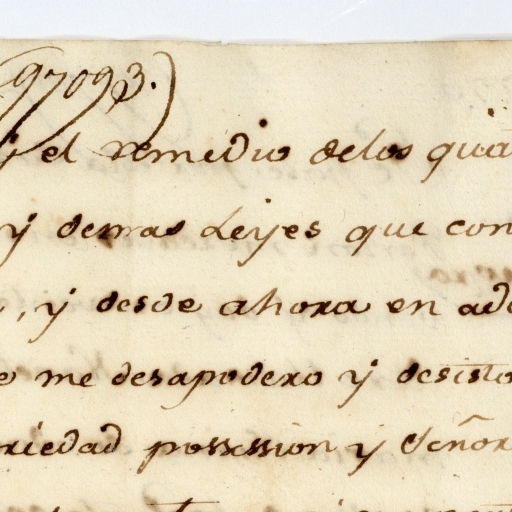 (97093.)
y el remedio delos qua
y demas Leyes que con
, y desde ahora en ade
me desapodero y desisto
riedad possession y Señor